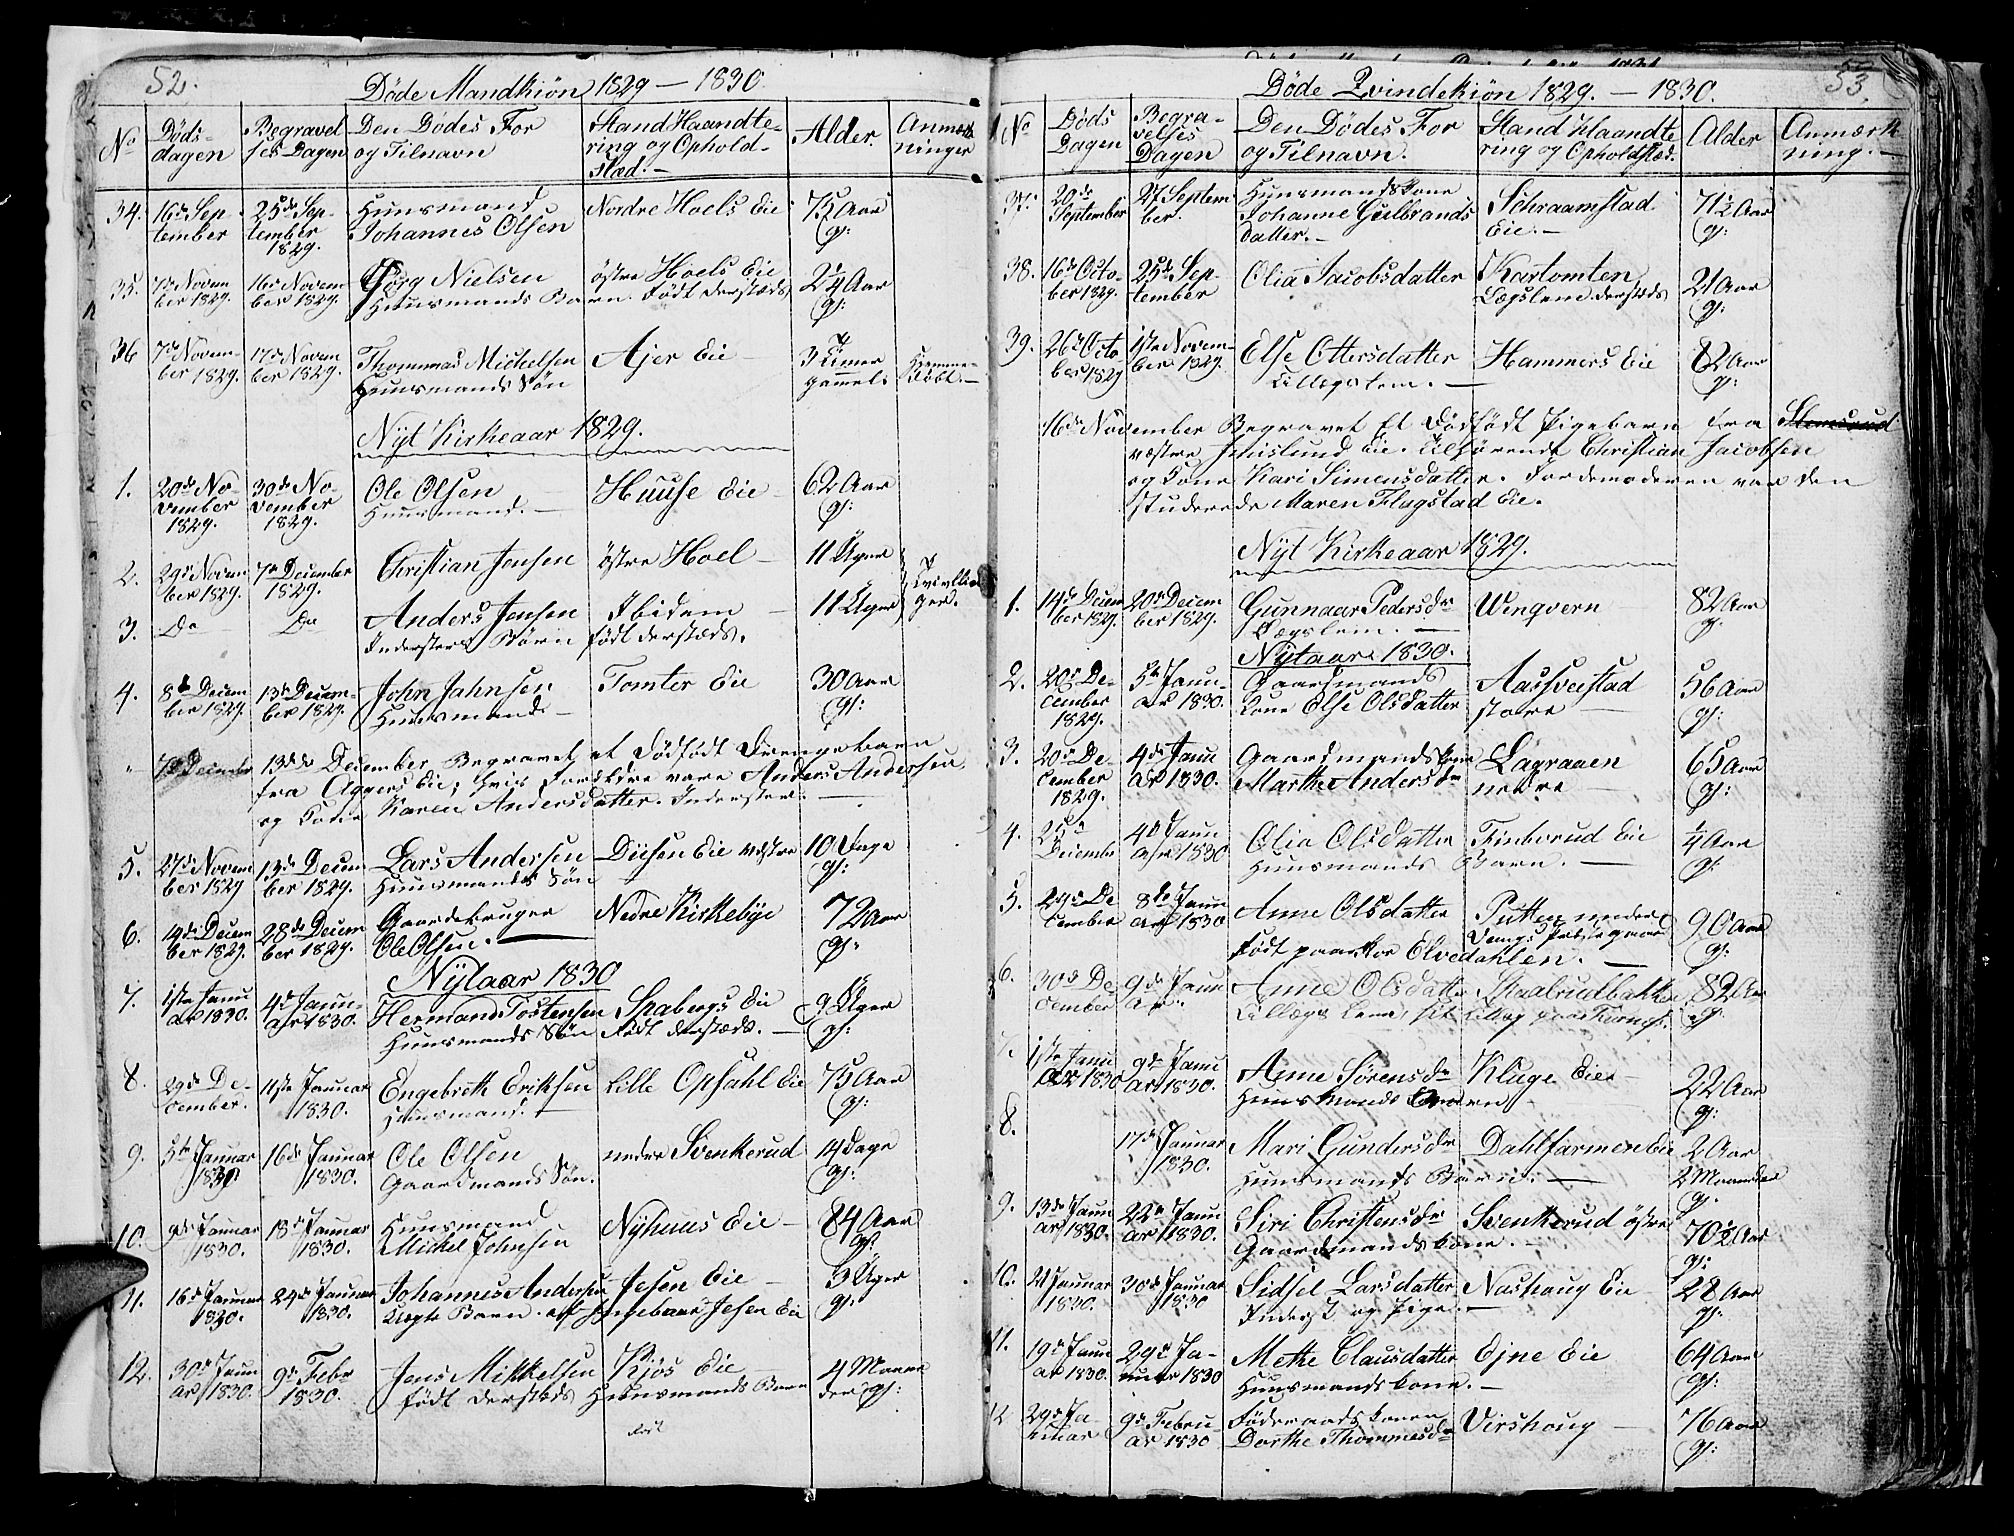 52.
Döde Mandkiön 1829 — 1830.
No
Döds-
dagen
Begravel
ses Dagen
Den Dødes For
og Tilnavn
Stand Haandte-
ring og Ophold-
Stæd. —
Alder.
Anmærk
ninger
34.
16de Sep-
tember
25de Sep-
tember
1829.
Huusmand
Johannes Olsen
Nordre Hoels Eie
75 Aar
gl:
35.
7de Novem
ber 1829.
16de Novem
ber 1829.
Nielsen
Huusmands Barn
østre Hoels Eie
Født dersteds
2¼ Aar
gl:
36
7de Novem-
ber 1829.
17de Novem
ber 1829.
Thommas Michelsen
Huusmands Søn
Ajer Eie —
3 Timer
gamel.
Hjemme-
døbt. —
Nyt Kirkeaar 1829.
1.
20de No-
vember
1829.
30de No-
vember
1829.
Ole Olsen
Huusmand. —
Huuse Eie —
62 Aar
gl:
2.
29de Novem
ber 1829.
7de December
1829.
Christian Jensen
østre Hoel —
11 Uger
Tvillin
ger.
3.
Do
Do
Anders Jensen
Inderster Børn født dersteds.
Ibidem —
11 Uger
4.
8de Decem
ber 1829.
13de Decem-
ber 1829.
John Jahnsen
Huusmand —
Tomter Eie
30 Aar
gl:
7de December
13de December Begravet et Dødfødt Drengebarn
fra Aggers Eie, hvis Forældre vare Anders Andersen
og Kone Karen Andersdatter. Inderster. —
5.
27de Novem
ber 1829
13de Decem
ber 1829.
Lars Andersen
Huusmands Søn
Diisen Eie vestre
10 Dage
gl:
6.
14de Decem
ber 1829.
28de Decem
ber 1829.
Gaardbruger
Ole Olsen. —
Nedre Kirkebye
72 Aar
gl:
Nytaar 1830
7.
1ste Janu
ar 1830.
4de Janu-
ar 1830.
Hermand Tostensen
Huusmands Søn
Spabergs Eie
Født dersteds. —
9 Uger
gl:
8.
29de De-
cember.
11te Januar
1830.
Engebreth Eriksen
Huusmand. —
Lille Opsahl Eie
75 Aar
gl:
9.
5te Januar
1830
16de Januar
1830.
Ole Olsen
Gaardmands Søn.
nedre Svenkerud
14 Dage
gl:
10.
9de Januar
1830.
18de Januar
1830.
Huusmand
Mikkel Johnsen
Nyhuus Eie —
84 Aar
gl:
11.
16de Januar
1830.
24de Januar
1830.
Johannes Andersen
Uægte Barn af Ingebaar Jesen Eie
Jesen Eie —
3 Uger
gl:
12.
30de Janu
ar 1830.
9de Febr
1830.
Jens Mikkelsen
født dersteds
Kjøs Eie —
Huusmands Barn
4 Maane
der gl:
født
53.
Döde Qvindekiön 1829. — 1830.
No
Døds
Dagen
Begra-
velses
Dagen
Den Dødes For
og Tilnavn.
Stand Haandte
ring og Opholdsted.
Alder
Anmærk
ning. —
37.
20de
September
27 Septem
ber.
Huusmandskone
Johanne Gulbrands
datter. —
Schraamstad
Eie. —
71½ Aar
gl:
38.
16de Octo-
ber 1829.
25de Sep-
tember
Olia Jacobsdatter
Kartomten
Lægslem dersteds
21 Aar
gl:
39.
26de Octo
ber 1829
1ste Novem-
ber 1829.
Else Ottersdatter
Lillægslem. —
Hammers Eie
82 Aar
gl:
16de November Begravet Et Dødfødt Pigebarn fra
vestre Eie. Tilhørende Christian Jacobsen
og Kone Kari Simensdatter. Jordemoderen var den
studerede Maren Flagstad Eie.
Nyt Kirkeaar 1829.
1.
14de Decem
ber 1829.
20de Decem
ber 1829.
Gunnaar Pedersdr
Lægslem. —
Wengvern
82 Aar
gl:
Nytaar 1830.
2.
20de De-
cember
1829.
5te Janu-
ar 1830.
Gaardmands
Kone Else Olsdatter
Aasveestad
store —
56 Aar
gl:
3.
20de De-
cember
1829.
4de Janu
ar 1830.
Gaardmandskone
Marthe Andersdr
Lagraaen
nedre —
65 Aar
gl:
4.
25de
December
4de Janu
ar 1830
Olia Olsdatter
Huusmands Barn. —
Finborud Eie
¼ Aar
gl:
5.
29de De
cember
8de Janu
ar 1830
Anne Olsdatter
Født paa Elvedahlen. —
Putten under
Vangs Præstegaard
90 Aar
gl:
6.
30de De
cember
9de Janu
ar.
Anne Olsdatter
Skaalrudbakken
82 Aar
gl:
7.
1ste Janu
ar 1830
9de Janu
ar 1830.
Anne Sørensdr
Huusmands
Kluge Eie —
22 Aar
gl:
8.
17de Januar
1830.
Mari Gundersdr
Huusmands Barn. —
Dahlfarmen Eie
2 Aar
2 Maaneder
gl.
9.
13de Janu
ar 1830.
22de Janu
ar 1830.
Siri Christensdr
Gaardmandskone. —
Svenkerud østre
70½ Aar
gl:
10.
21 Januar
1830.
30de Januar
1830
Sidsel Larsdatter
Inderst og Pige. —
Nashoug Eie
28 Aar
gl:
11.
19de Janu
ar 1830.
29de Ja-
nuar 1830
Methe Clausdatter
Huusmandskone. —
Ejne Eie
64 Aar
gl:
12
29de Ja-
nuar
9de Febru-
ar 1830
Føderaadskonen
Dorthe Thommesdr
Virshoug —
76 Aar
gl: